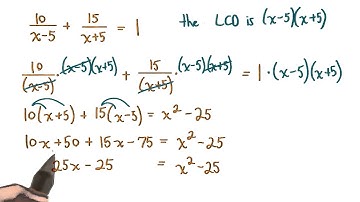 10/(x-5) + 15/(x+5) = 1
the LCD is (x-5)(x+5)
10/(x-5) · (x-5)(x+5) + 15/(x+5) · (x-5)(x+5) = 1 · (x-5)(x+5)
10(x+5) + 15(x-5) = x² - 25
10x + 50 + 15x - 75 = x² - 25
25x - 25 = x² - 25